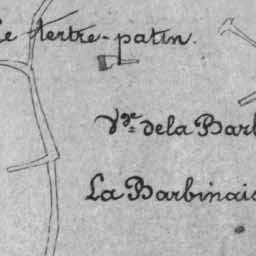 Le tertre-patin.
Vge= dela Barb
La Barbinais